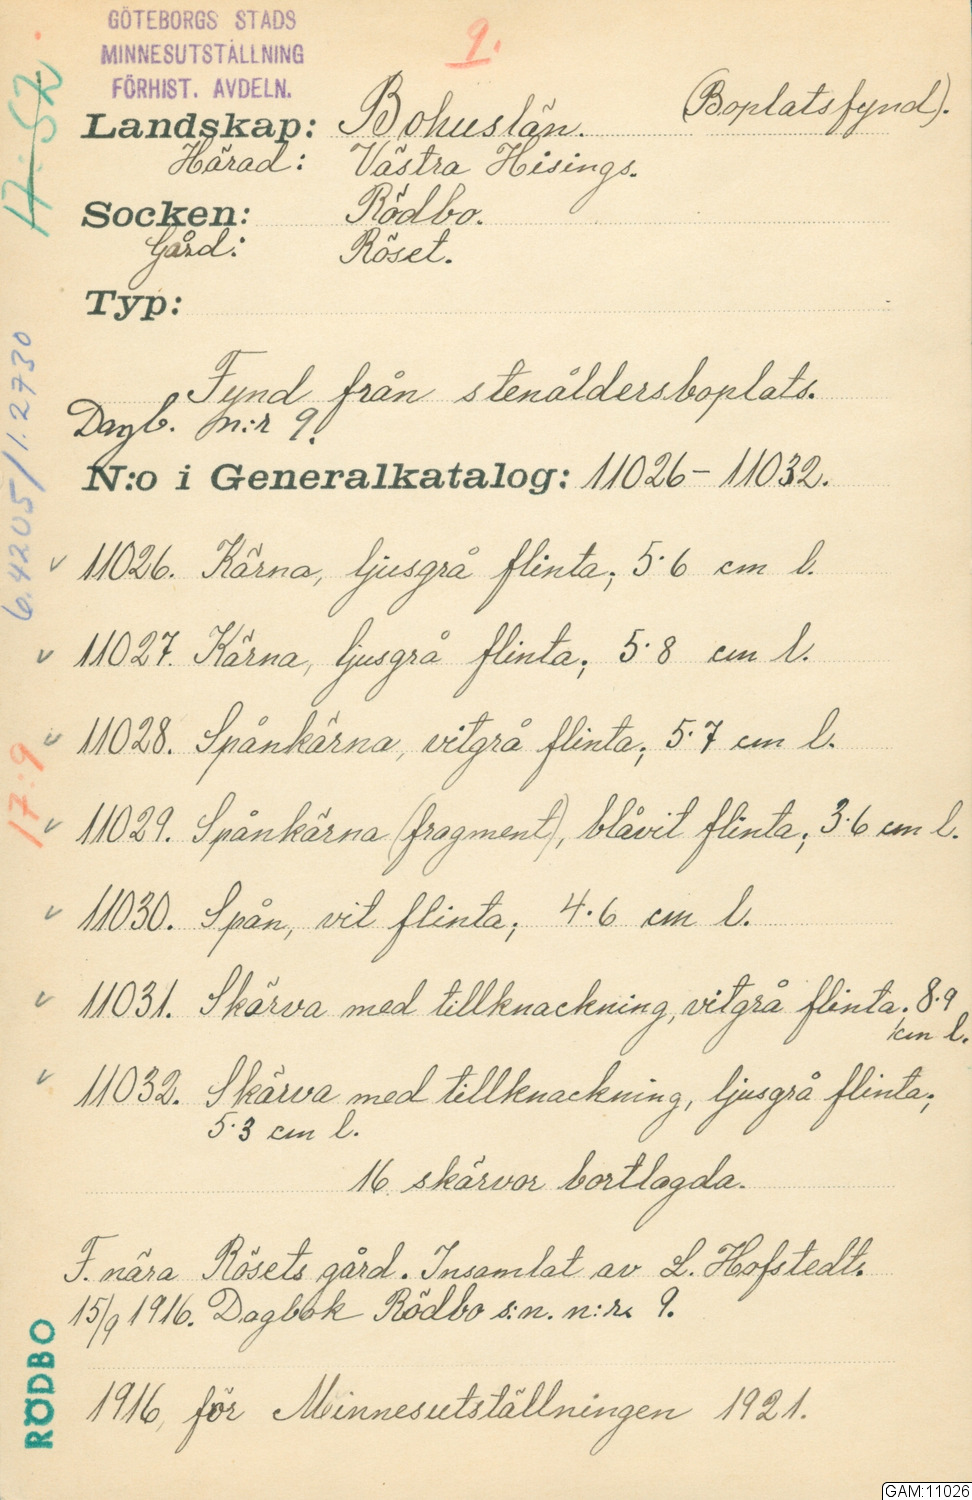 GÖTEBORGS STADS
MINNESUTSTÄLLNING
FÖRHIST. AVDELN.
9.
(Boplatsfynd).
Landskap: Bohuslän.
Härad: Västra Hisings.
Socken: Rödbo.
Gård: Röset.
Typ:
Fynd från stenåldersboplats.
Dagb. n:r 9.
N:o i Generalkatalog: 11026-11032.
v 11026. Kärna, ljusgrå flinta; 5.6 cm l.
v 11027. Kärna, ljusgrå flinta; 5.8 cm l.
v 11028. Spånkärna, vitgrå flinta; 5.7 cm l.
v 11029. Spånkärna (fragment), blåvit flinta; 3.6 cm l.
v 11030. Spån, vit flinta; 4.6 cm l.
v 11031. Skärva med tillknackning, vitgrå flinta; 8.9
cm l.
v 11032. Skärva med tillknackning, ljusgrå flinta;
5.3 cm l.
16 skärvor bortlagda.
F. nära Rösets gård. Insamlat av L. Hofstedt.
15/9 1916. Dagbok Rödbo s:n. n:r 9.
1916, för Minnesutställningen 1921.
6.4205/1.2730
17:9
RÖDBO
GAM:11026